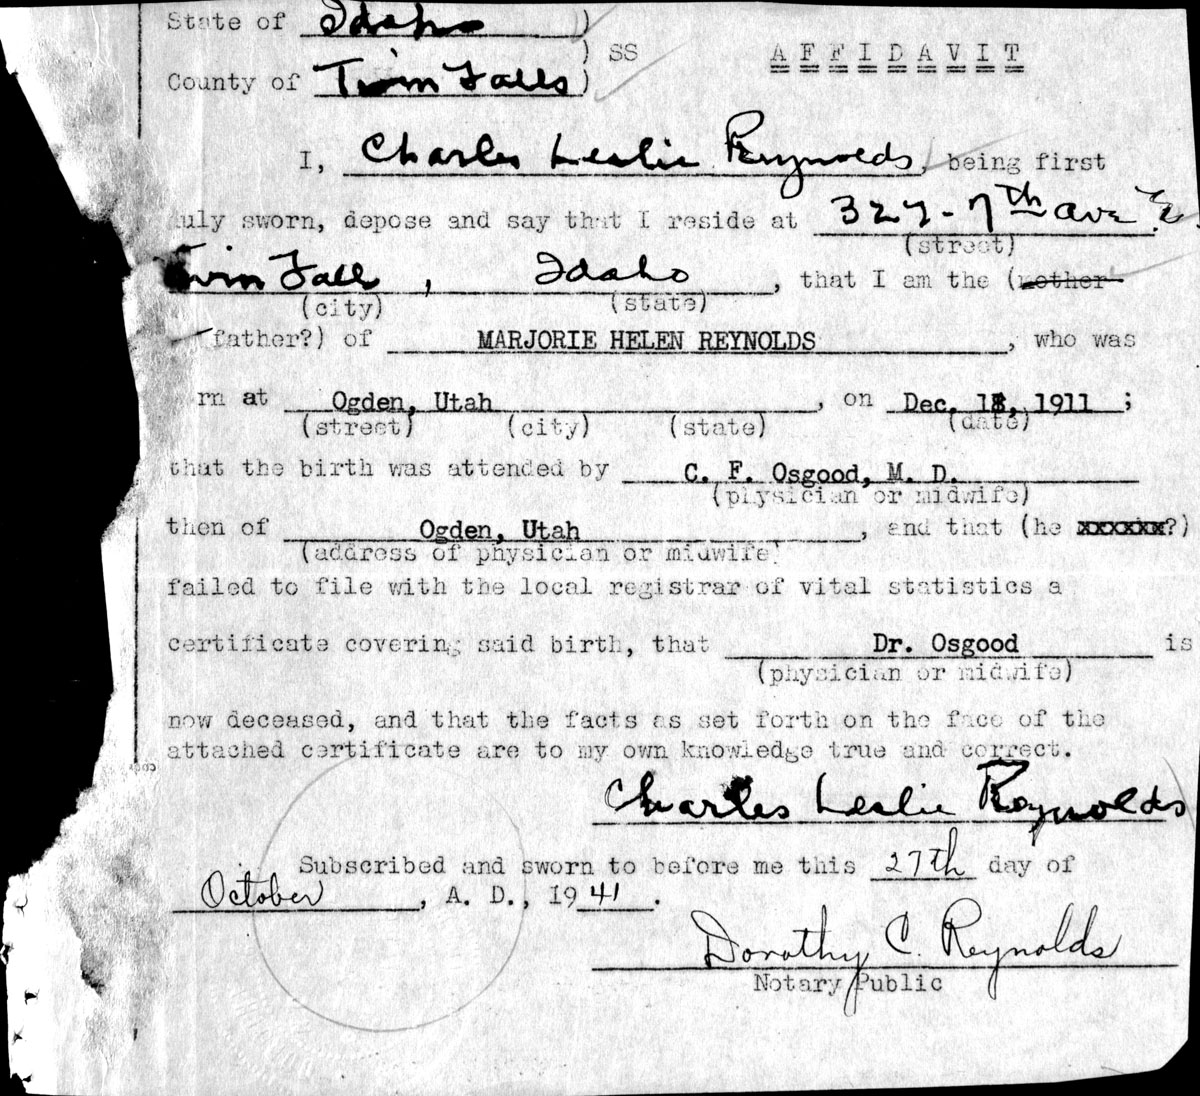 State of Idaho )
) SS AFFIDAVIT
County of Twin Falls )
I, Charles Leslie Reynolds, being first
uly sworn, depose and say that I reside at 327-7th ave E.
(street)
win Falls, Idaho, that I am the (mother
(city) (state)
father?) of MARJORIE HELEN REYNOLDS, who was
rn at Ogden, Utah, on Dec. , 1911;
(street) (city) (state) (date)
that the birth was attended by C. F. Osgood, M. D.
(physician or midwife)
then of Ogden, Utah, and that (he xxxxxx?)
(address of physician or midwife)
failed to file with the local registrar of vital statistics a
certificate covering said birth, that Dr. Osgood is
(physician or midwife)
now deceased, and that the facts as set forth on the face of the
attached certificate are to my own knowledge true and correct.
Charles Leslie Reynolds
Subscribed and sworn to before me this 27th day of
October, A. D., 1941.
Dorothy C. Reynolds
Notary Public